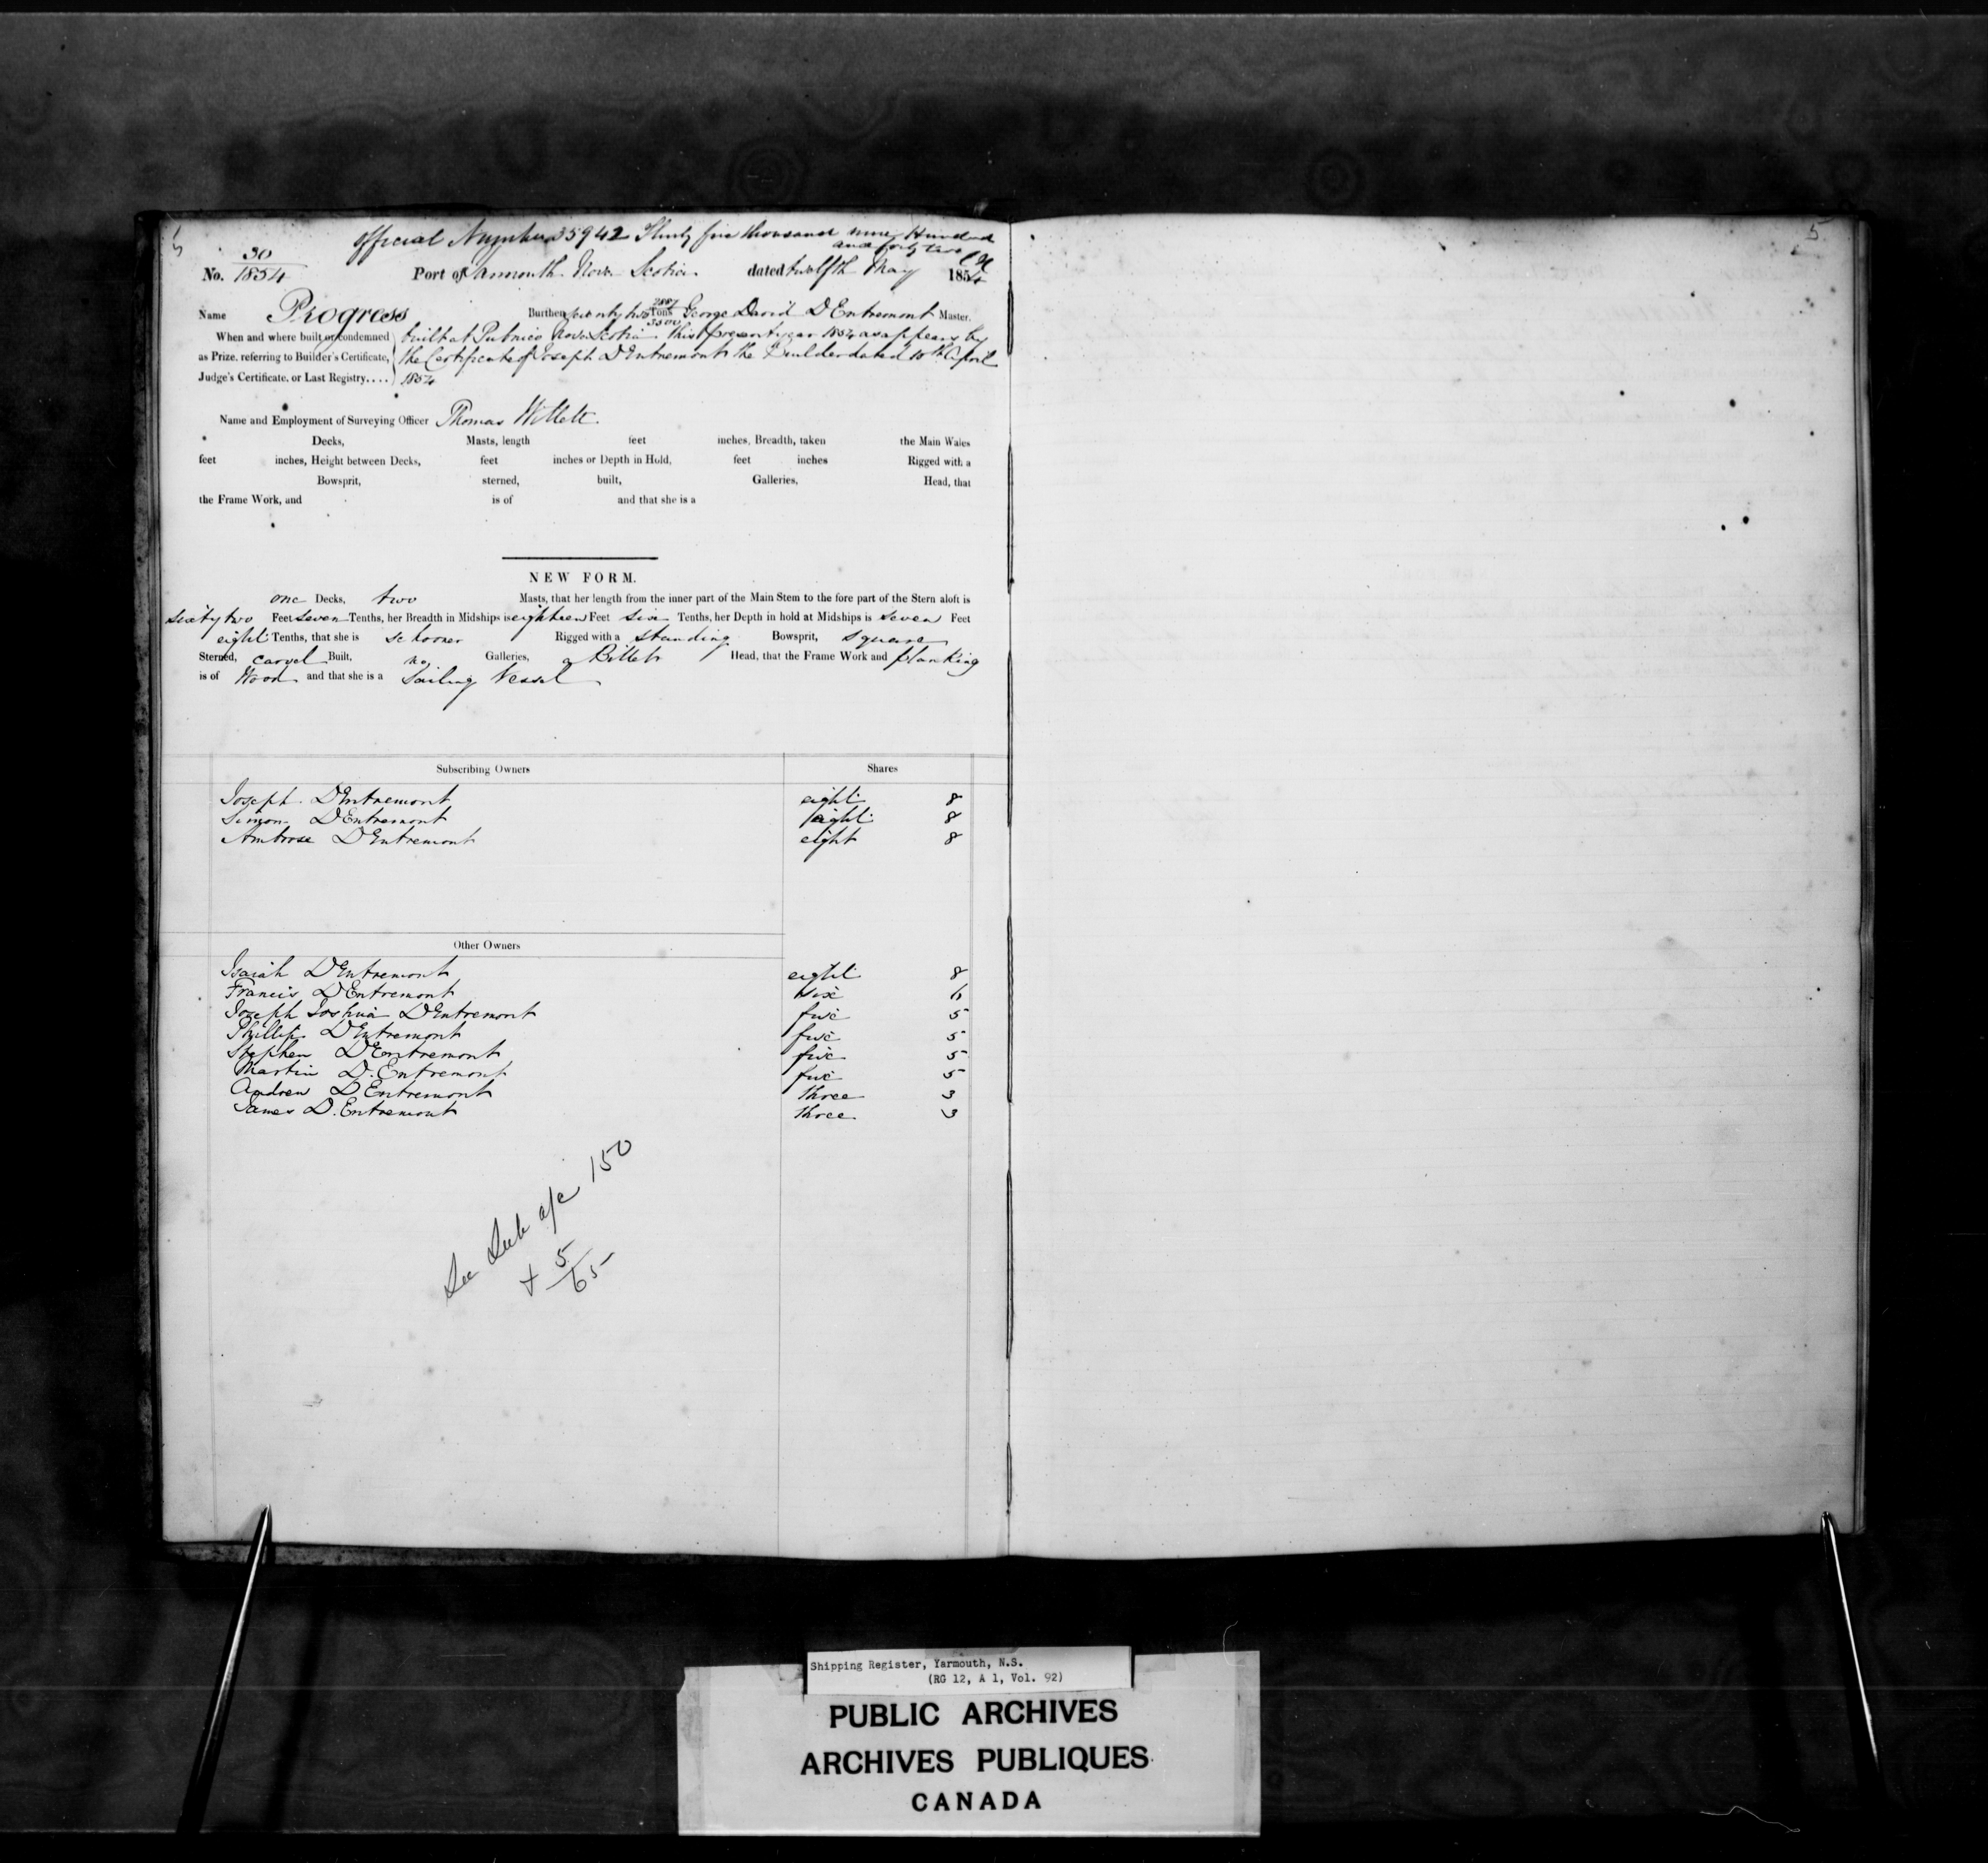 5
official Number 35942 Thirty five thousand nine Hundred
and forty two
No. 30/1854 Port of Yarmouth Nova Scotia dated twelfth May 1854
Name Progress Burthen seventy two 2887/3500 Tons George David D'Entremont Master.
When and where built or condemned built at Pubnico Nova Scotia this present year 1854 as appears by
as Prize, referring to Builder's Certificate, the Certificate of Joseph D'Entremont the Builder dated 10th April
Judge's Certificate, or Last Registry.... 1854
Name and Employment of Surveying Officer Thomas Willett
Decks, Masts, length feet inches, Breadth, taken the Main Wales
feet inches, Height between Decks, feet inches or Depth in Hold, feet inches Rigged with a
Bowsprit, sterned, built, Galleries, Head, that
the Frame Work, and is of and that she is a
NEW FORM.
one Decks, two Masts, that her length from the inner part of the Main Stem to the fore part of the Stern aloft is
sixty two Feet seven Tenths, her Breadth in Midships is eighteen Feet six Tenths, her Depth in hold at Midships is seven Feet
eight Tenths, that she is schooner Rigged with a standing Bowsprit, square
Sterned, carvel Built, no Galleries, a Billet Head, that the Frame Work and planking
is of Wood and that she is a Sailing Vessel
Subscribing Owners Shares
Joseph D'Entremont eight 8
Simon D'Entremont eight 8
Ambrose D'Entremont eight 8
Other Owners
Isaiah D'Entremont eight 8
Francis D'Entremont six 6
Joseph Joshua D'Entremont five 5
Phillip D'Entremont five 5
Stephen D'Entremont five 5
Martin D.Entremont five 5
Andrew D'Entremont three 3
James D.Entremont three 3
See Sub a/c 150
+ 5/65
5
Shipping Register, Yarmouth, N.S.
(RG 12, A 1, Vol. 92)
PUBLIC ARCHIVES
ARCHIVES PUBLIQUES
CANADA